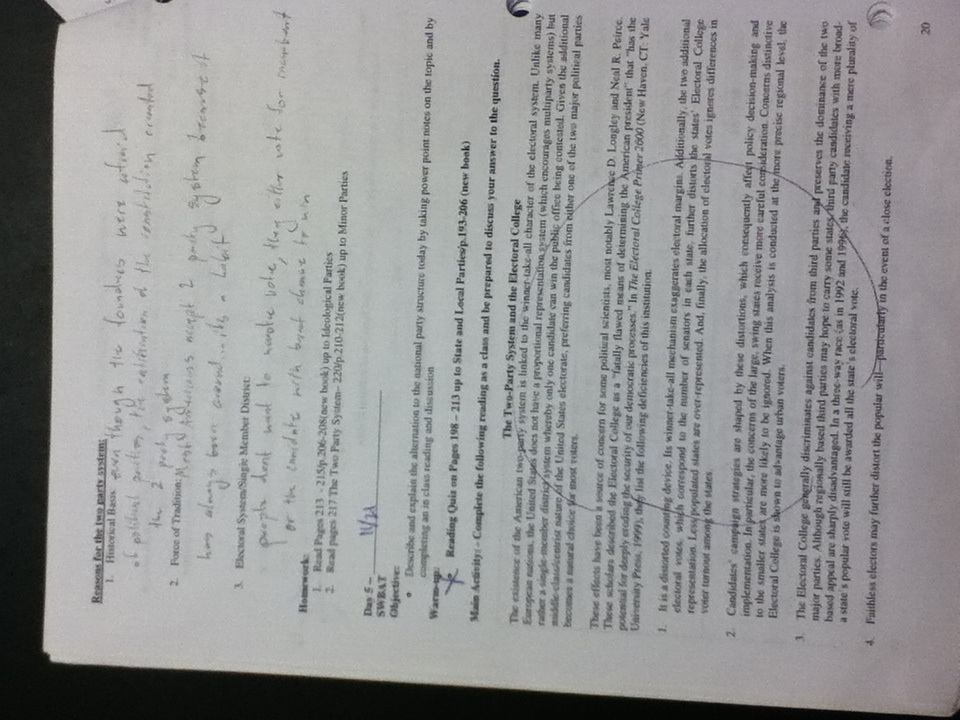 Reasons for the two party system:
1. Historical Basis: even though the founders were afraid
of political parties, the ratification of the constitution created
the 2 party system
2. Force of Tradition: Most Americans accept 2 party system because it
has always been around...its a habit
3. Electoral System/Single Member District:
people dont want to waste vote, they either vote for incumbent
or the canidate with best chance to win
Homework:
1. Read Pages 213 - 215/p.206-208(new book) up to Ideological Parties
2. Read pages 217 The Two Party System– 220/p.210-212(new book) up to Minor Parties
Day 5 – 11/21
SWBAT
Objective:
• Describe and explain the alternation to the national party structure today by taking power point notes on the topic and by
completing an in class reading and discussion
Warm-up:
Reading Quiz on Pages 198 – 213 up to State and Local Parties/p.193-206 (new book)
Main Activity: - Complete the following reading as a class and be prepared to discuss your answer to the question.
The Two-Party System and the Electoral College
The existence of the American two-party system is linked to the winner-take-all character of the electoral system. Unlike many
European nations, the United States does not have a proportional representation system (which encourages multiparty systems) but
rather a single-member district system whereby only one candidate can win the public office being contested. Given the additional
middle-class/centrist nature of the United States electorate, preferring candidates from either one of the two major political parties
becomes a natural choice for most voters.
These effects have been a source of concern for some political scientists, most notably Lawrence D. Longley and Neal R. Peirce.
These scholars described the Electoral College as a "fatally flawed means of determining the American president" that "has the
potential for deeply eroding the security of our democratic processes." In The Electoral College Primer 2000 (New Haven, CT: Yale
University Press, 1999), they list the following deficiencies of this institution:
1. It is a distorted counting device. Its winner-take-all mechanism exaggerates electoral margins. Additionally, the two additional
electoral votes, which correspond to the number of senators in each state, further distorts the states' Electoral College
representation. Less populated states are over-represented. And, finally, the allocation of electoral votes ignores differences in
voter turnout among the states.
2. Candidates' campaign strategies are shaped by these distortions, which consequently affect policy decision-making and
implementation. In particular, the concerns of the large, swing states receive more careful consideration. Concerns distinctive
to the smaller states are more likely to be ignored. When this analysis is conducted at the more precise regional level, the
Electoral College is shown to advantage urban voters.
3. The Electoral College generally discriminates against candidates from third parties and preserves the dominance of the two
major parties. Although regionally based third parties may hope to carry some states, third party candidates with more broad-
based appeal are sharply disadvantaged. In a three-way race (as in 1992 and 1996), the candidate receiving a mere plurality of
a state's popular vote will still be awarded all the state's electoral vote.
4. Faithless electors may further distort the popular will—particularly in the event of a close election.
20